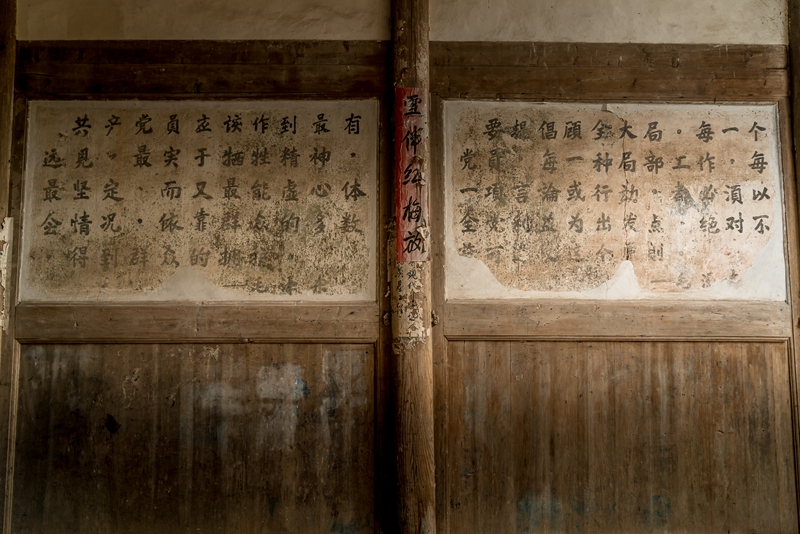 共产党员应该作到最有
远见，最　于牺牲精神，
最坚定，而又最能虚心体
会情况，依靠群众的多数
得到群众的拥护
雪伴红梅放
要提倡顾全大局。每一个
党　，每一种局部工作，每
一项言论或行动，都必须以
全党利益为出发点，绝对不